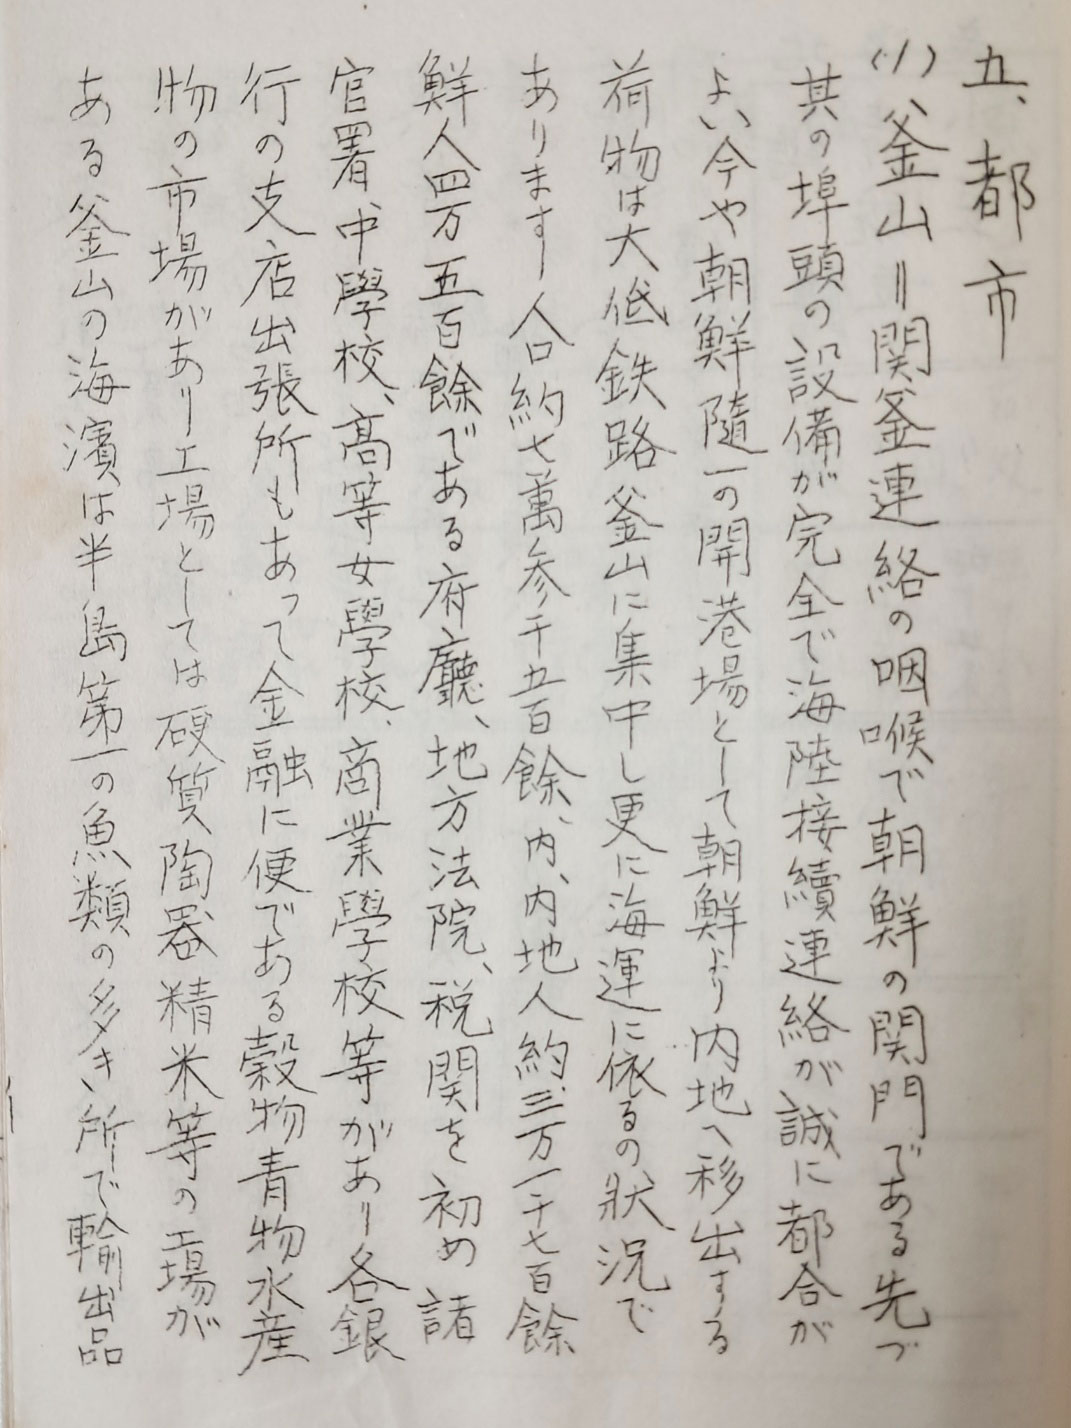 五、都市
(1)釜山=関釜連絡の咽喉で朝鮮の関門である先づ
其の埠頭の設備が完全で海陸接續連絡が誠に都合が
よい今や朝鮮隨一の開港場として朝鮮より内地へ移出する
荷物は大低鉄路釜山に集中し更に海運に依るの狀況で
あります人口約七萬参千五百餘、内、内地人約三万一千七百餘
鮮人四万五百餘である府廳、地方法院、税関を初め諸
官署、中學校、高等女學校、商業學校等があり各銀
行の支店出張所もあって金融に便である穀物青物水産
物の市場があり工場としては硬質陶器精米等の工場が
ある釜山の海濱は半島第一の魚類の多き所で輸出品